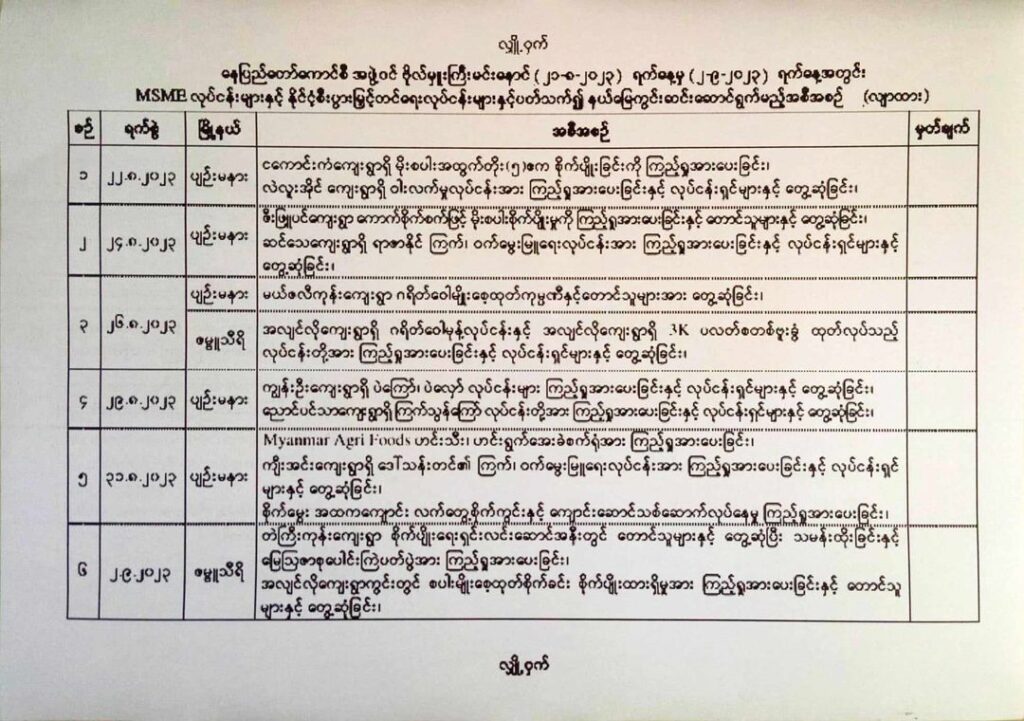 လျှို့ဝှက်
နေပြည်တော်ကောင်စီ အဖွဲ့ဝင် ဗိုလ်မှူးကြီးမင်းနောင် (၂၁-၈-၂၀၂၃) ရက်နေ့မှ (၂-၉-၂၀၂၃) ရက်နေ့အတွင်း
MSME လုပ်ငန်းများနှင့် နိုင်ငံ့စီးပွားမြှင့်တင်ရေးလုပ်ငန်းများနှင့်ပတ်သက်၍ နယ်မြေကွင်းဆင်းဆောင်ရွက်မည့်အစီအစဉ် (လျာထား)
စဉ် ရက်စွဲ မြို့နယ် အစီအစဉ် မှတ်ချက်
၁ ၂၂.၈.၂၀၂၃ ပျဉ်းမနား
ငကောင်းကံကျေးရွာရှိ မိုးစပါးအထွက်တိုး(၅)ဧက စိုက်ပျိုးခြင်းကို ကြည့်ရှုအားပေးခြင်း၊
လဲလူးအိုင် ကျေးရွာရှိ ဝါးလက်မှုလုပ်ငန်းအား ကြည့်ရှုအားပေးခြင်းနှင့် လုပ်ငန်းရှင်များနှင့် တွေ့ဆုံခြင်း၊
၂ ၂၄.၈.၂၀၂၃ ပျဉ်းမနား
ဇီးဖြူပင်ကျေးရွာ ကောက်စိုက်စက်ဖြင့် မိုးစပါးစိုက်ပျိုးမှုကို ကြည့်ရှုအားပေးခြင်းနှင့် တောင်သူများနှင့် တွေ့ဆုံခြင်း၊
ဆင်သေကျေးရွာရှိ ရာဇာနိုင် ကြက်၊ ဝက်မွေးမြူရေးလုပ်ငန်းအား ကြည့်ရှုအားပေးခြင်းနှင့် လုပ်ငန်းရှင်များနှင့်
တွေ့ဆုံခြင်း၊
၃ ၂၆.၈.၂၀၂၃ ပျဉ်းမနား
မယ်ဇလီကုန်းကျေးရွာ ဂရိတ်ဝေါမျိုးစေ့ထုတ်ကုမ္ပဏီနှင့်တောင်သူများအား တွေ့ဆုံခြင်း၊
ဇမ္ဗူသီရိ
အလျင်လိုကျေးရွာရှိ ဂရိတ်ဝေါမုန့်လုပ်ငန်းနှင့် အလျင်လိုကျေးရွာရှိ 3K ပလတ်စတစ်ဗူးခွံ ထုတ်လုပ်သည့်
လုပ်ငန်းတို့အား ကြည့်ရှုအားပေးခြင်းနှင့် လုပ်ငန်းရှင်များနှင့် တွေ့ဆုံခြင်း၊
၄ ၂၉.၈.၂၀၂၃ ပျဉ်းမနား
ကျွန်းဦးကျေးရွာရှိ ပဲကြော်၊ ပဲလှော် လုပ်ငန်းများ ကြည့်ရှုအားပေးခြင်းနှင့် လုပ်ငန်းရှင်များနှင့် တွေ့ဆုံခြင်း၊
ညောင်ပင်သာကျေးရွာရှိ ကြက်သွန်ကြော် လုပ်ငန်းတို့အား ကြည့်ရှုအားပေးခြင်းနှင့် လုပ်ငန်းရှင်များနှင့် တွေ့ဆုံခြင်း၊
၅ ၃၁.၈.၂၀၂၃ ပျဉ်းမနား
Myanmar Agri Foods ဟင်းသီး၊ ဟင်းရွက်အေးခဲစက်ရုံအား ကြည့်ရှုအားပေးခြင်း၊
ကျီးအင်းကျေးရွာရှိ ဒေါ်သန်းတင်၏ ကြက်၊ ဝက်မွေးမြူရေးလုပ်ငန်းအား ကြည့်ရှုအားပေးခြင်းနှင့် လုပ်ငန်းရှင်
များနှင့် တွေ့ဆုံခြင်း၊
စိုက်မွေး အထကကျောင်း လက်တွေ့စိုက်ကွင်းနှင့် ကျောင်းဆောင်သစ်ဆောက်လုပ်နေမှု ကြည့်ရှုအားပေးခြင်း၊
၆ ၂.၉.၂၀၂၃ ဇမ္ဗူသီရိ
တဲကြီးကုန်းကျေးရွာ စိုက်ပျိုးရေးရှင်းလင်းဆောင်အနီးတွင် တောင်သူများနှင့် တွေ့ဆုံပြီး သမန်းထိုးခြင်းနှင့်
မြေဩဇာစုပေါင်းကြဲပတ်ပွဲအား ကြည့်ရှုအားပေးခြင်း၊
အလျင်လိုကျေးရွာကွင်းတွင် စပါးမျိုးစေ့ထုတ်စိုက်ခင်း စိုက်ပျိုးထားရှိမှုအား ကြည့်ရှုအားပေးခြင်းနှင့် တောင်သူ
များနှင့် တွေ့ဆုံခြင်း၊
လျှို့ဝှက်